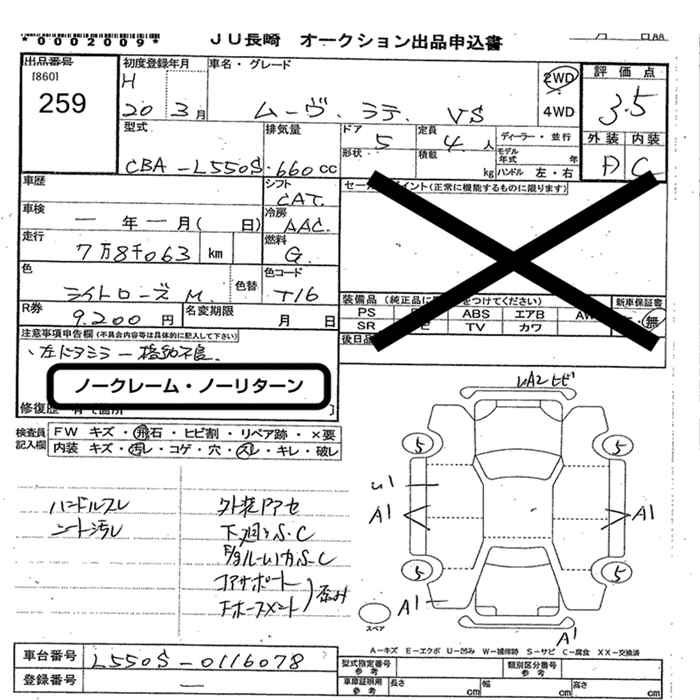 *0002009*
JU長崎 オークション出品申込書
出品番号
[860]
259
初度登録年月
H
20 3月
車名・グレード
ムーヴ. ラテ. VS
2WD
4WD
評価点
3.5
外装 内装
A C
型式
CBA-L550S
排気量
660cc
ドア 5
形状
定員 4人
積載 kg
ディーラー・並行
モデル年式 年
ハンドル 左・右
車歴
シフト
CAT.
車検
一年一月( 日)
冷房
AAC.
走行
7万8千063 km
燃料
G.
色
ライトローズM.
色替
色コード
T16
R券
9,200円
名変期限
月 日
セー ポイント(正常に機能するものに限ります)
装備品(純正品に をつけてください)
PS ABS エアB AW
SR TV カワ
新車保証書
無
後日品
注意事項申告欄(不具合内容等は具体的に記入して下さい)
・左ドアミラー格動不良.
ノークレーム・ノーリターン
修復歴
検査員記入欄
FW キズ・飛石・ヒビ割・リペア跡・×要
内装 キズ・汚レ・コゲ・穴・スレ・キレ・破レ
ハンドルスレ
シート汚レ
外装Pアセ
下廻りS.C
コアサポート
歪み
UA2 ヒビ
5 5
U1
A1 A1
5 5
A1
A1
スペア
A-キズ E-エクボ U-凹み W-補修跡 S-サビ C-腐食 XX-交換済
車台番号
L550S-0116078
登録番号
一
型式指定番号
参考
類別区分番号
参考
車庫証明用
参考
長さ cm 幅 cm 高さ cm